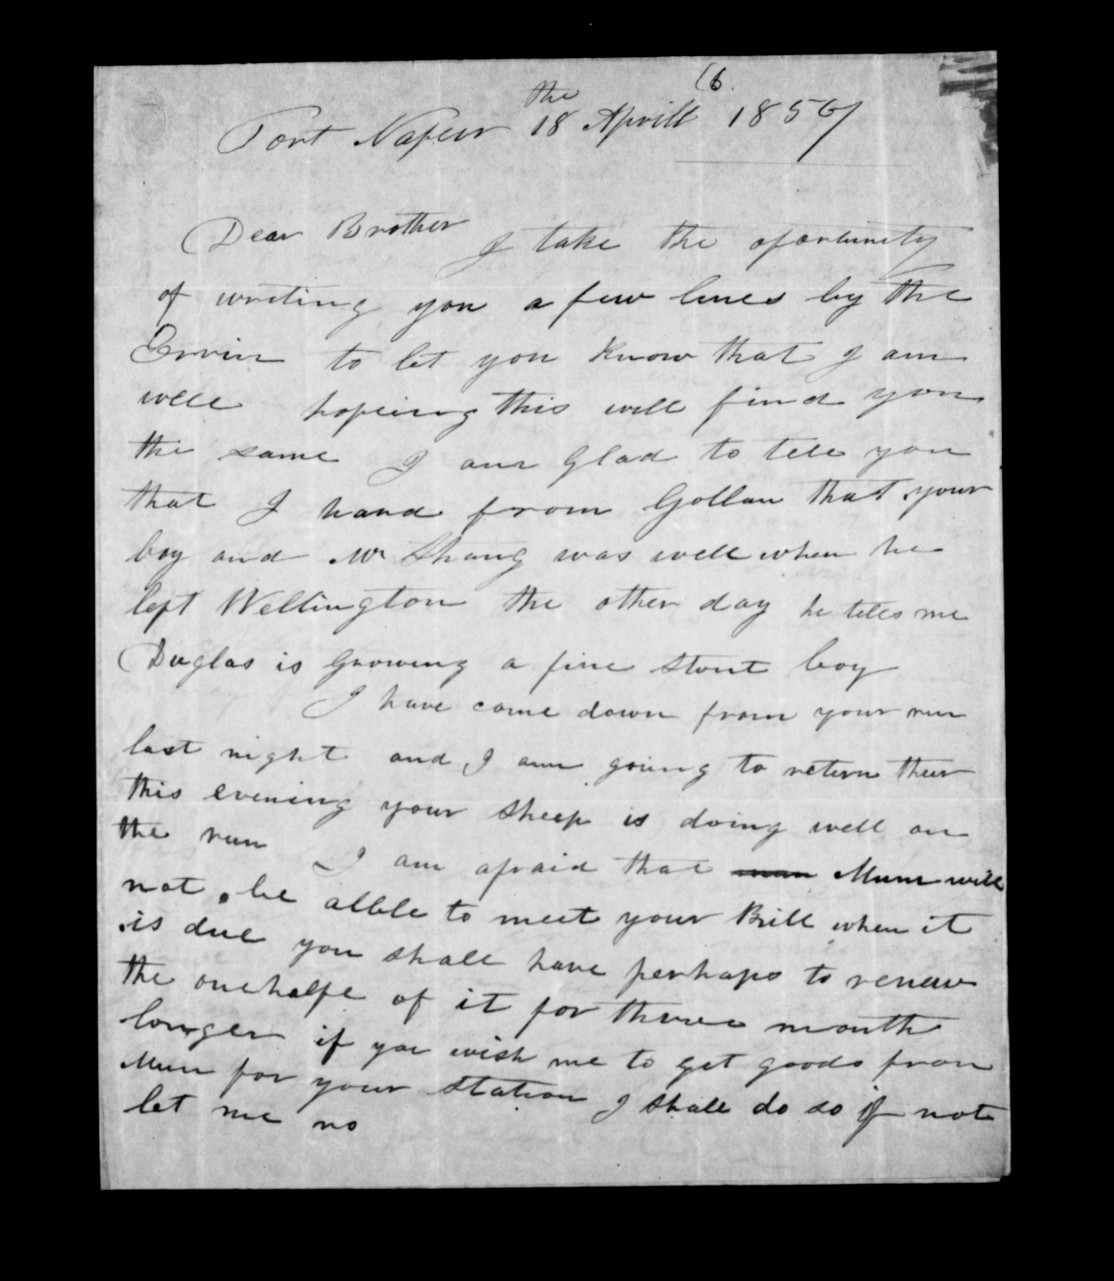 (6.
Port Napeir 18 the Aprill 1857
Dear Brother I take the oportunity
of writing you a few lines by the
Ervin to let you know that I am
well hopeing this will find you
the same I am Glad to tell you
that I heard from Gollan that your
boy and Mr Shang was well when he
left Wellington the other day he tells me
Duglas is Growing a fine stout boy
I have come down from your run
last night and I am going to return their
this evening your sheep is doing well on
the run I am afraid that Munn will
not be allble to meet your Bill when it
is due you shall have perhaps to renew
the onehalfe of it for three month
longer if you wish me to get goods from
Munn for your station I shall do so if not
let me no